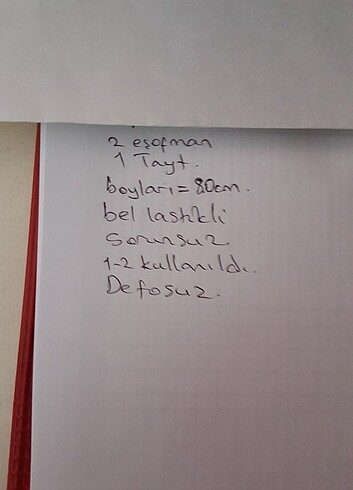 2 eşofman
1 Tayt.
boyları = 80cm.
bel lastikli
sorunsuz
1-2 kullanıldı.
Defosuz.